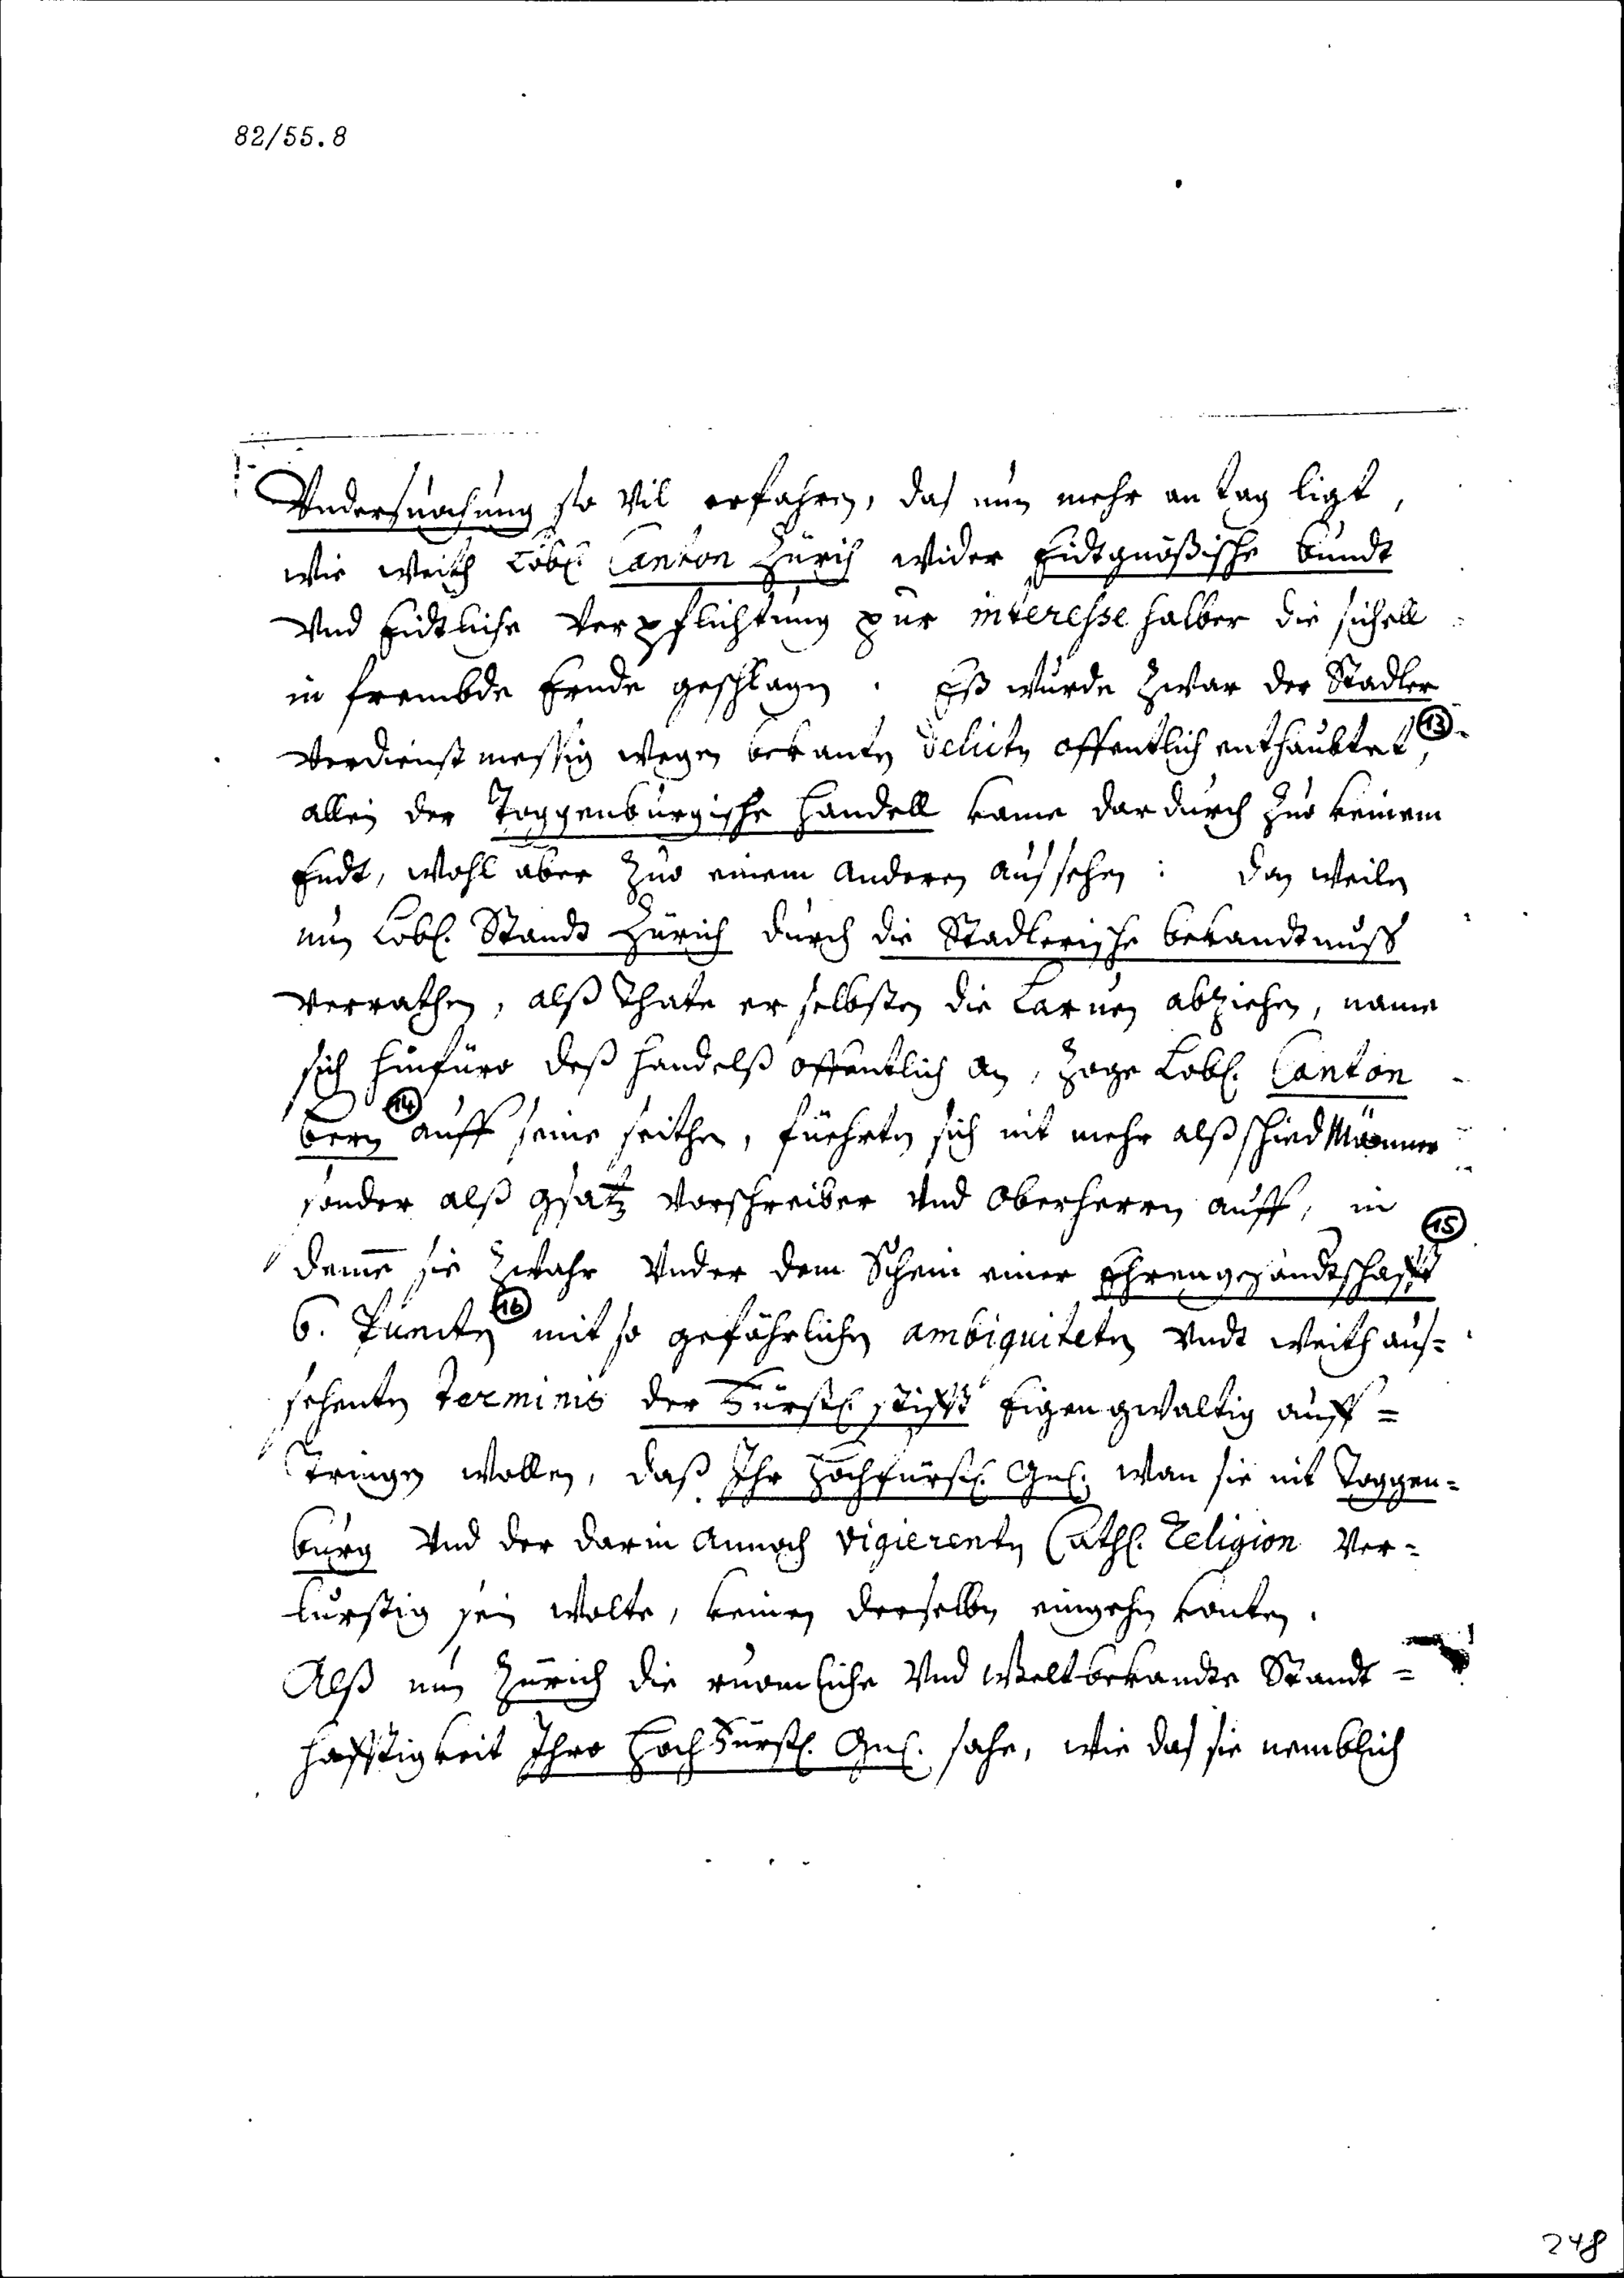 82/55.8
Undersuochung so vil erfahren, das nun mehr an tag ligt,
wie weith Löbl. Canton Zürich wider Eidtgnößische bundt
und Eidtliche verpflichtung pur interesse halber die sichell
in frembde Ernde geschlagen. Eß wurde zwar der Stadler
verdienstmessig wegen bekanten delicten offentlich enthaubtet, 13
allein der Toggenburgische Handell kame dardurch zuo keinem
Endt, wohl aber zuo einem anderen aussehen: dan weilen
nun Lobl. Standt Zürich durch die Stadlerische bekandtnuss
verrathen, alß thate er selbsten die Larven abziehen, name
sich hinfüro deß handelß offentlich an, zoge Lobl. Canton
bern 14 auff seine seithen, füehrten sich nit mehr alß schiedMänner
sonder alß gsatz vorschreiber und Oberherren auff, in
deme sie zwahr under dem Schein einer Ehrengesandtschafft 15
6. Puncten 16 mit so gefährlichen ambiquiteten undt weith aus=
sehenten terminis der Fürstl. stifft Eigengwaltig auff=
tringen wollen, daß Ihr Hochfürstl. Gnl. wan sie nit Toggen=
burg und der darin annoch vigierenten Cathl. Religion ver=
lurstig sein wolte, keinen derselben eingehen konten.
Alß nun Zürich die ruomliche und weltbekandte Standt=
hafftigkeit Ihro HochFürstl. Gnl. sahe, wie das sie nemblich
248